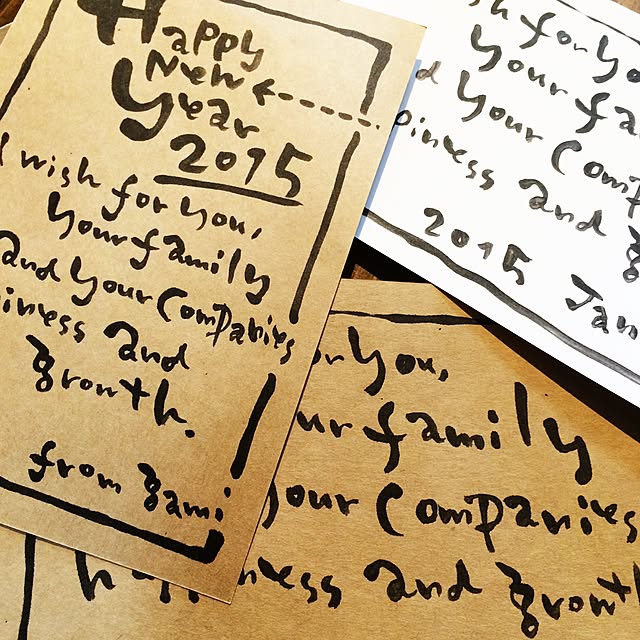 Happy
New
Year
2015
I wish for you,
your family
and your companies
iness and
growth.
from gami
sh for yo
your fa
d your comp
piness and g
2015 Jan
or you,
ur family
our companies
ha iness and growt